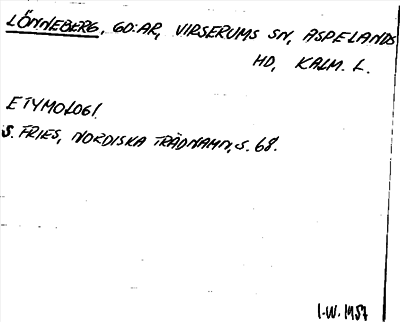 LÖNNEBERG, GD:AR, VIRSERUMS SN, ASPELANDS
HD, KALM. L.
ETYMOLOGI.
S. FRIES, NORDISKA TRÄDNAMN, S. 68.
I.W. 1957